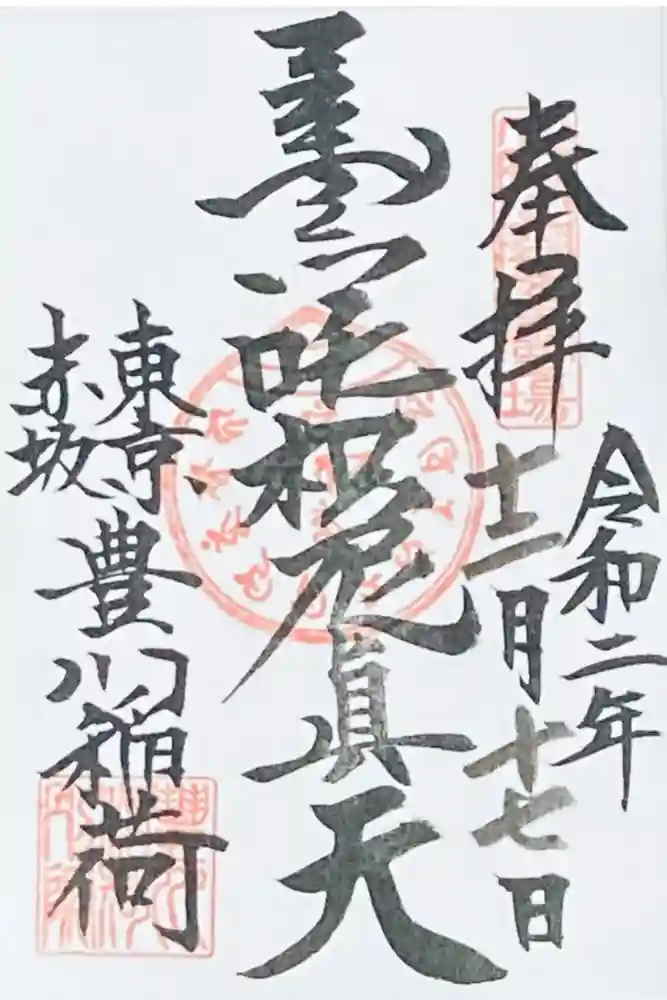 奉拝
令和二年
十二月十七日
吒枳尼真天
東京
赤坂
豊川稲荷